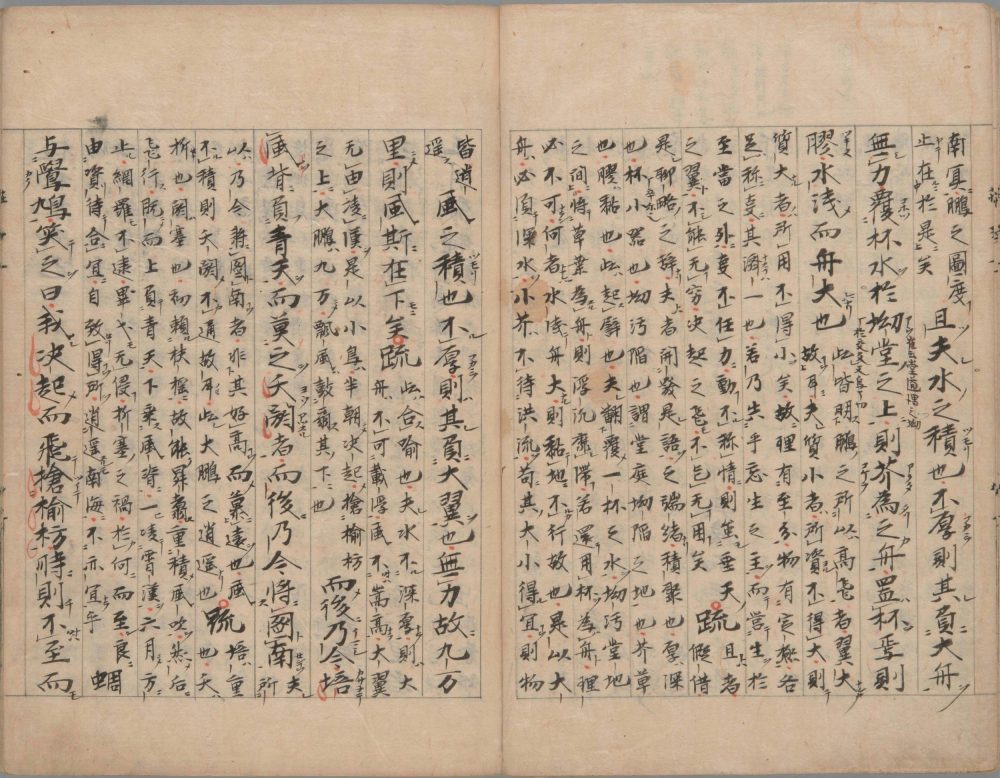 南冥鵬之圖度
止在於是矣
且夫水之積也不厚則其負大舟
無力覆杯水於坳堂之上則芥為之舟置杯焉則
膠水淺而舟大也
此皆明鵬之所以高飛者翼大
故耳夫質小者所資不得大則
質大者所用不得小矣故理有至分物有定極各
足稱事其濟一也若乃失乎忘生之主而營生於
至當之外事不任力動不称情則雖垂天
之翼不能无窮決起之飛不乞无用矣
疏
且者
假借
是聊略之辞夫者開發是語之端緒積聚也厚深
也杯小器也坳污陷也謂堂庭坳陷之地也芥草
也膠黏也此起譬也夫翻覆一杯之水坳污堂地
之間將草葉為舟則浮沉靡滞若還用杯為舟理
必不可何者水浅舟大則黏地不行故也是以大
舟必須深水小芥不待洪流苟其大小得宜則物
皆逍
遥
風之積也不厚則其負大翼也無力故九万
里則風斯在下矣疏
此合喩也夫水不深厚則大
舟不可載浮風不崇高大翼
无由凌漢是以小鳥半朝決起搶榆枋
之上大鵬九万飄風鼓扇其下也
而後乃今培
風背負青天而莫之夭閼者而後乃今將圖南
夫
所
以乃今将圖南者非其好高而慕遠也風
不積則夭閼不通故耳此大鵬之逍遥也
疏
培重
也夭
折也閼塞也初頼扶摇故能昇翥重積風吹然后
飛行既而上負青天下乗風脊一凌霄漢六月方
止網羅不逮畢弋无侵折塞之禍於何而至良
由資待合宜自致得所逍遥南海不亦宜乎
蜩
与鷽鳩笑之曰我決起而飛搶榆枋時則不至而